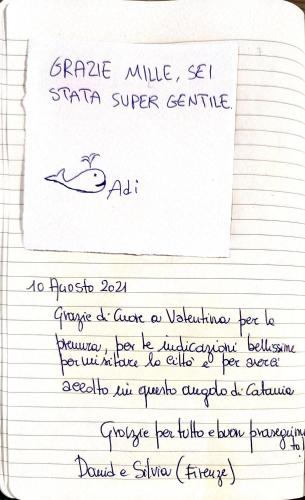 GRAZIE MILLE, SEI
STATA SUPER GENTILE.
Adi
10 Agosto 2021
Grazie di cuore a Valentina per la
premura, per le indicazioni bellissime
per visitare la città e per averci
accolto in questo angolo di Catania
Grazie per tutto e buon proseguimen
to!
David e Silvia (Firenze)